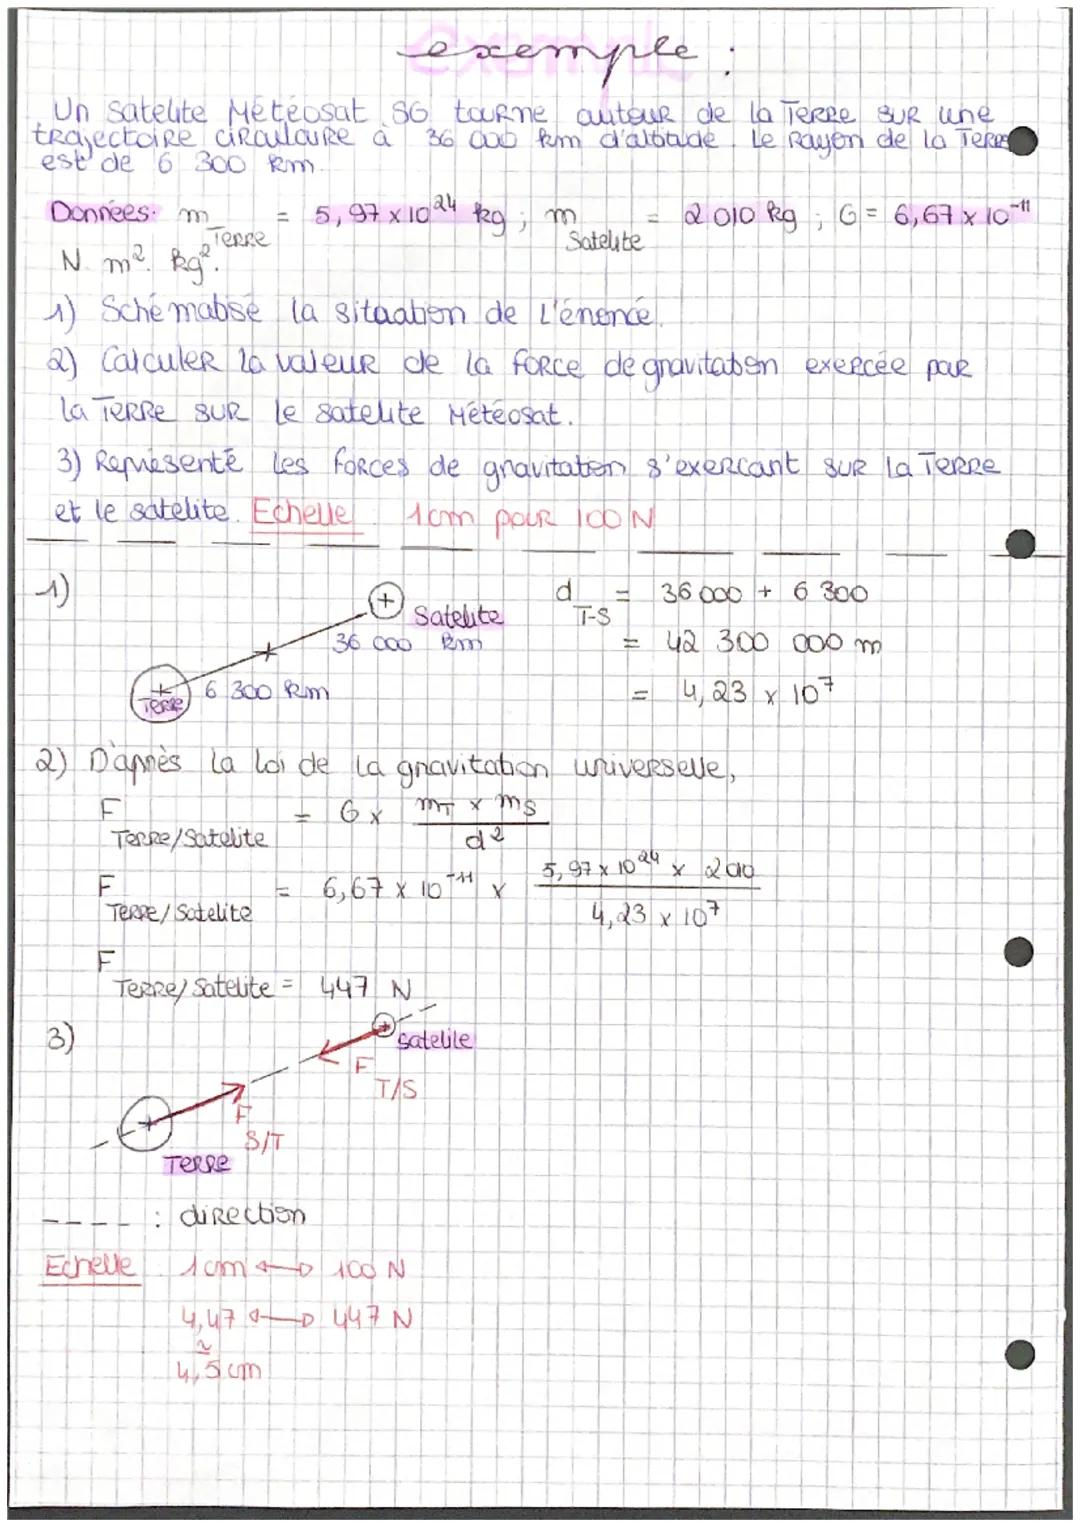 exemple :
Un satelite Météosat 8G tourne autour de la Terre sur une
trajectoire circulaire à 36 000 km d'altitude. Le Rayon de la Terre
est de 6 300 km.
Données: m Terre = 5,97 x 10²⁴ kg ; m Satelite = 2 010 kg ; G = 6,67 x 10⁻¹¹
N. m². kg².
1) Schématisé la situation de l'énoncé.
2) Calculer la valeur de la force de gravitation exercée par
la Terre sur le satelite Météosat.
3) Représenté les forces de gravitation s'exercant sur la Terre
et le satelite. Echelle : 1cm pour 100 N
1)
Satelite
36 000 km
6 300 km
Terre
d T-S = 36 000 + 6 300
= 42 300 000 m
= 4,23 x 10⁷
2) D'après la loi de la gravitation universelle,
F Terre/Satelite = G x mT x mS / d²
F Terre/Satelite = 6,67 x 10⁻¹¹ x 5,97 x 10²⁴ x 2010 / 4,23 x 10⁷
F Terre/Satelite = 447 N
3)
satelite
F T/S
F S/T
Terre
---- : direction
Echelle : 1cm ↔ 100 N
4,47 ↔ 447 N
≈
4,5 cm